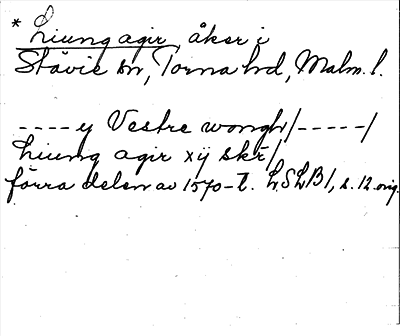 * Liung agir, åker i
Stävie sn, Torna hd, Malm. l.
----- ij Vestre wongh/-----/
Liung agir xij skr/
förra delen av 1570-t. LSLB 1, s. 12 orig.